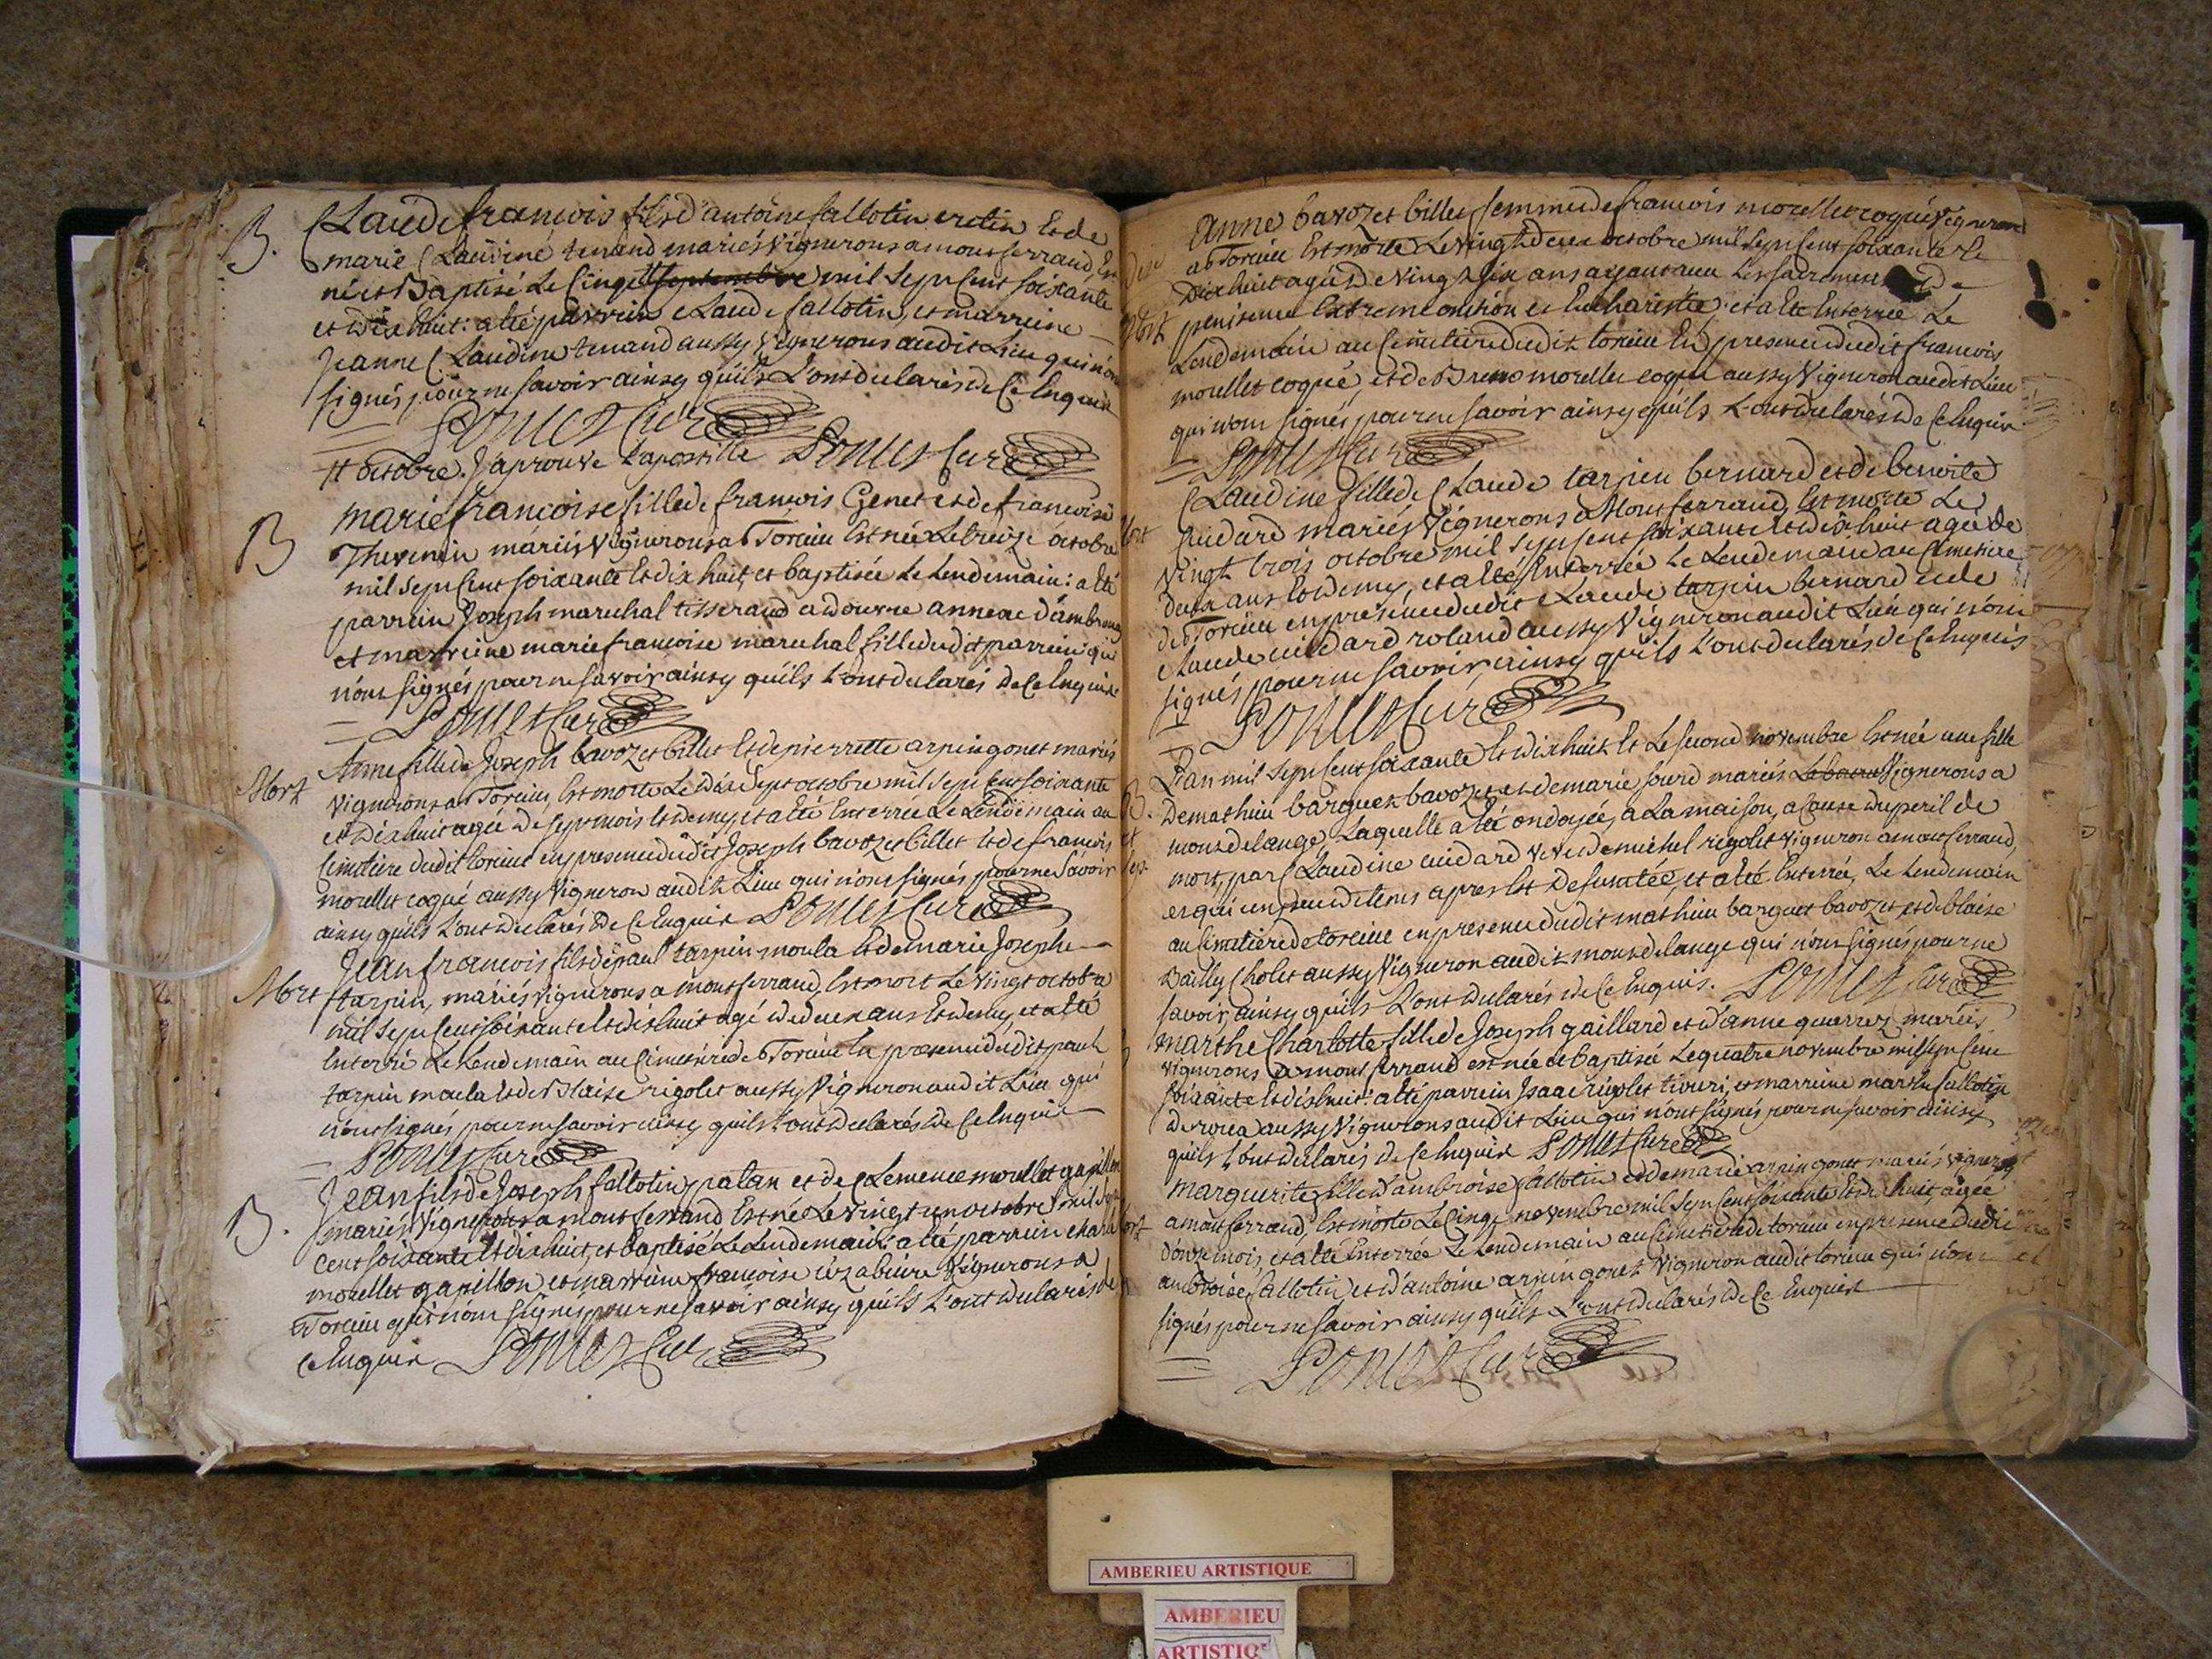 B. Claude francois fils d'antoine fallotin cretin Et de
marie Claudine tenand mariés Vignerons a montferrand Est
né et Baptisé Le Cinq tt septembre mil Sept Cent soixante
et dix huit: a été parrein Claude fallotin, et marreine
Jeanne Claudine tenand aussy Vignerons audit Lieu qui n'ont
signés pour ne savoir ainsy quils L'ont declarés de Ce Enquis
Poncet Curé
tt octobre. J'aprouve L'apostille Poncet Curé
B marie francoise fille de francois Genet et de francoise
Thevenin mariés Vignerons a Torcieu Est née Le treize octobre
mil Sept Cent soixante Et dix huit et baptisée Le Lendemain: a Eté
parrein Joseph marechal tisserand a douvre annexe d'ambronay
et marreine marie francoise marechal fille dudit parrein qui
n'ont signés pour ne savoir ainsy quils L'ont declarés de Ce Enquis
Poncet Curé
Anne fille de Joseph bavozet billet Et de pierrette arpin gonet mariés
Mort Vignerons a Torcieu, Est morte Le dix Sept octobre mil Sept Cent soixante
et dix huit agée de sept mois Et demy, et a Eté Enterrée Le Lendemain au
Cimetiere dudit torcieu en presence dudit Joseph bavozet billet Et de francois
morellet coqué aussy Vigneron audit Lieu qui n'ont signés pour ne savoir
ainsy quils L'ont declarés de Ce Enquis Poncet Curé
Jean francois fils de paul tarpin moula Et de marie Josephe
Mort tarpin, mariés vignerons a montferrand, Est mort Le vingt octobre
mil Sept Cent soixante Et dix huit agé de deux ans Et demy, et a Eté
Enterré Le Lendemain au Cimetiere de Torcieu En presence dudit paul
tarpin moula Et de Blaise rigolet aussy Vigneron audit Lieu qui
n'ont signés pour ne savoir ainsy quils L'ont declarés de Ce Enquis
Poncet Curé
Jean fils de Joseph fallotin patan et de Clemence morellet gapillon
B. mariés Vignerons a montferrand Est né Le vingt un octobre mil Sept
Cent soixante Et dix huit, et baptisé Le Lendemain: a Eté parrein
morellet gapillon, et marreine francoise Vignerons a
Torcieu qui n'ont signés pour ne savoir ainsy quils L'ont declarés de
Ce Enquis Poncet Curé
Anne bavozet billet femme de francois morellet coqué Vigneron
a Torcieu Est morte Le Vingt deux octobre mil Sept Cent soixante Et
Dix huit agée de Vingt six ans ayant recu Les sacremens de
penitence Extreme onction et Eucharistie: et a Eté Enterrée Le
Lendemain au Cimetiere dudit torcieu En presence dudit francois
morellet coqué et de morellet coqué aussy Vigneron audit Lieu
qui n'ont signés pour ne savoir ainsy quils L'ont declarés de Ce Enquis
Poncet Curé
Claudine fille de Claude tarpin bernard et de benoite
Cuidard mariés Vignerons a Montferrand, Est morte Le
Vingt trois octobre mil Sept Cent soixante Et dix huit agée de
deux ans Et demy, et a Eté Enterrée Le Lendemain au Cimetiere
de Torcieu en presence dudit Claude tarpin bernard et de
Claude cuidard roland aussy Vigneron audit Lieu qui n'ont
signés pour ne savoir ainsy quils L'ont declarés de Ce Enquis
Poncet Curé
L'an mil Sept Cent soixante Et dix huit Et Le second novembre Est née une fille
B. De mathieu barquet bavozet et de marie sourd mariés Vignerons a
mont de lange, Laquelle a été ondoyée, a La maison, a Cause du peril de
mort, par Claudine cuidard veuve de michel rigolet vigneron a montferrand,
et qui un peu de tems apres Est decedée, et a été Enterrée, Le Lendemain
au Cimetiere de torcieu en presence dudit mathieu barquet bavozet et de blaise
Bailly Cholet aussy Vigneron audit mont de lange qui n'ont signés pour ne
savoir, ainsy quils L'ont declarés de Ce Enquis. Poncet Curé
Marthe Charlotte fille de Joseph gaillard et d'anne guerrez mariés
vignerons a montferrand est née et baptisée Le quatre novembre mil sept Cent
soixante Et dix huit: a été parrein Isaac rigolet et marreine marthe fallotin
aussy Vignerons audit Lieu qui n'ont signés pour ne savoir ainsy
quils L'ont declarés de Ce Enquis Poncet Curé
Marguerite fille d'ambroise fallotin et de marie arpin gonet mariés vignerons
a montferrand, Est morte Le Cinq novembre mil Sept Cent soixante Et dix huit, agée
d'onze mois, et a été Enterrée Le Lendemain au Cimetiere de torcieu en presence dudit
ambroise fallotin, et d'antoine arpin gonet Vigneron audit torcieu qui n'ont
signés pour ne savoir ainsy quils L'ont declarés de Ce Enquis
Poncet Curé
AMBERIEU ARTISTIQUE
AMBERIEU
ARTISTIQ